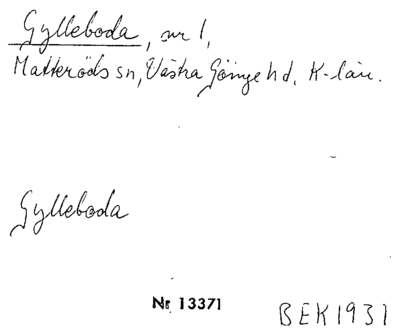 Gylleboda, nr 1,
Matteröds sn, Västra Göinge hd. K-län.
Gylleboda
Nr 13371
BEK1931